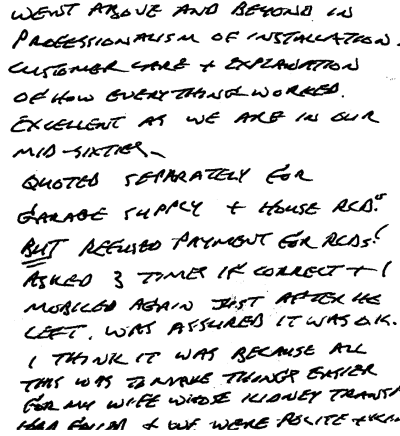 WENT ABOVE AND BEYOND IN
PROFESSIONALISM OF INSTALLATION.
CUSTOMER CARE + EXPLANATION
OF HOW EVERYTHING WORKED.
EXCELLENT AS WE ARE IN OUR
MID-SIXTIES.
QUOTED SEPARATELY FOR
GARAGE SUPPLY + HOUSE RCD.
BUT REFUSED PAYMENT FOR RCDs!
ASKED 3 TIMES IF CORRECT + I
MOBILED AGAIN JUST AFTER HE
LEFT. WAS ASSURED IT WAS O.K.
I THINK IT WAS BECAUSE ALL
THIS WAS TO MAKE THINGS EASIER
FOR MY WIFE WHOSE KIDNEY TRANS
HAD FAILED + WE WERE POLITE +